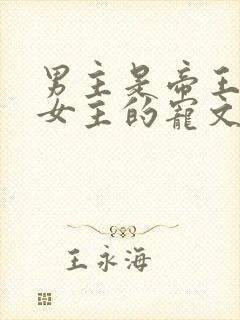 男主是帝王
女主的寵文
王永海